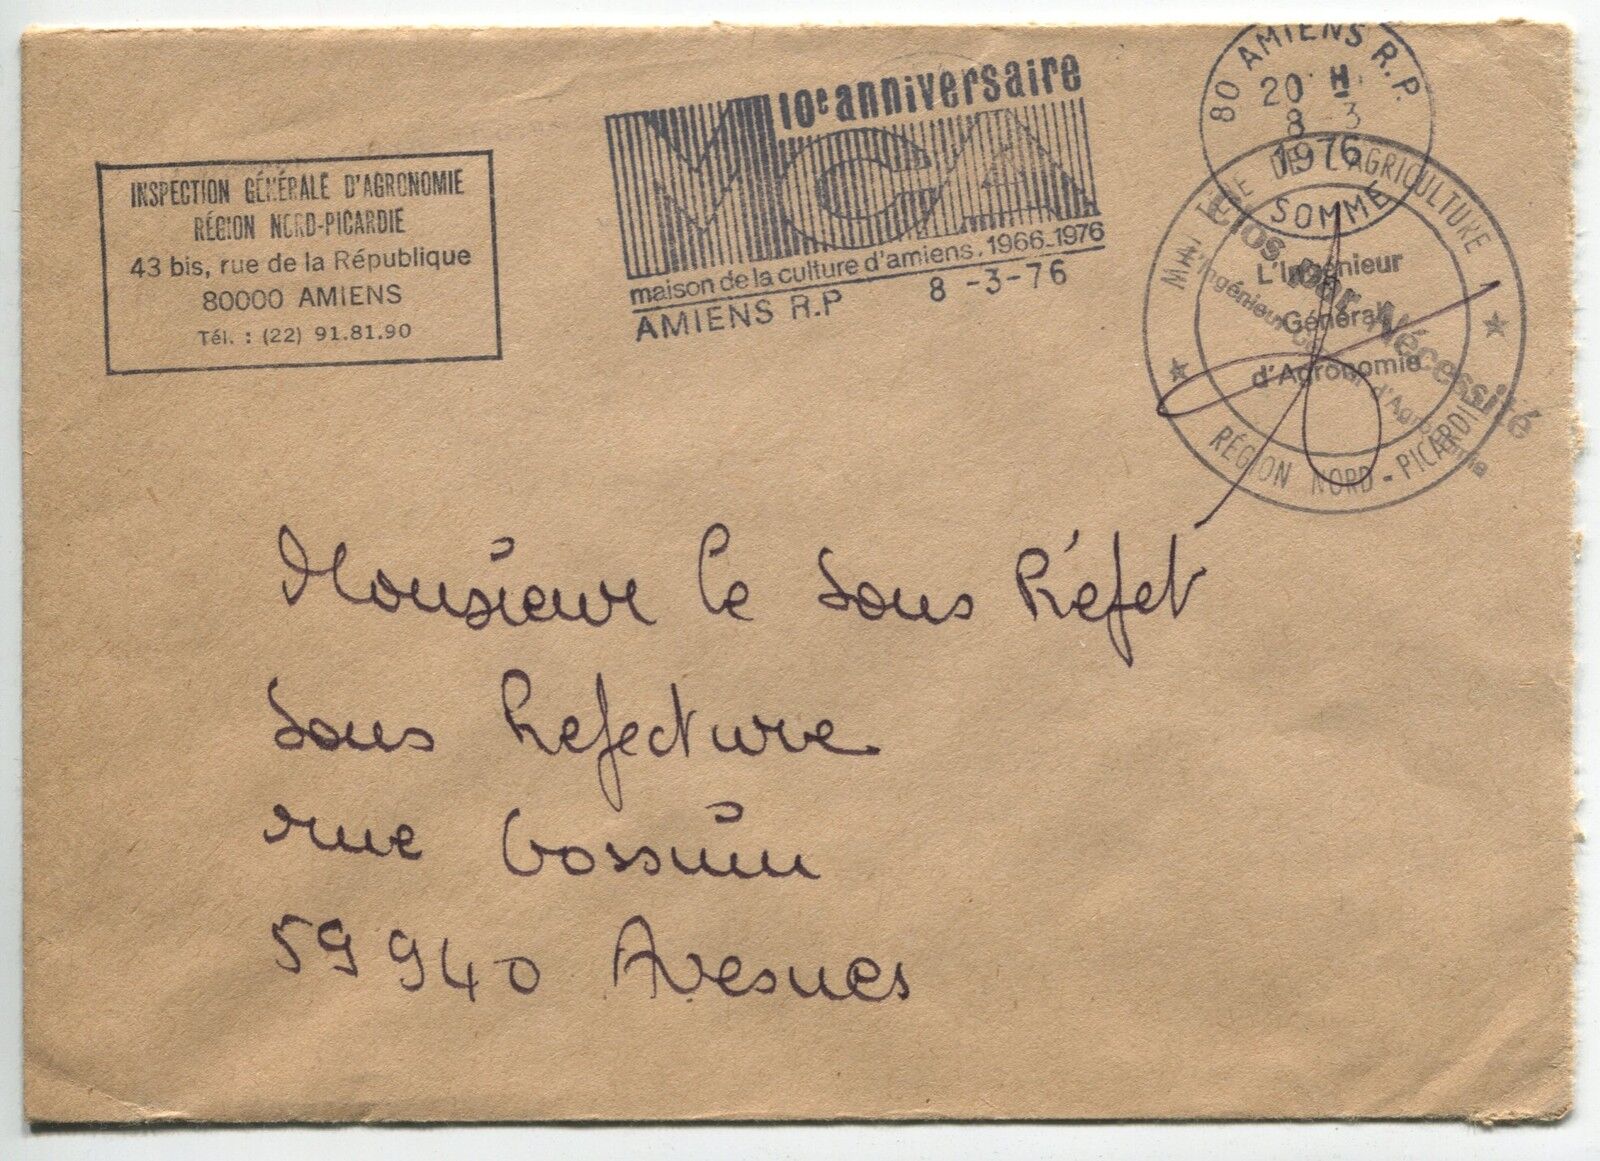 INSPECTION GÉNÉRALE D'AGRONOMIE
RÉGION NORD-PICARDIE
43 bis, rue de la République
80000 AMIENS
Tél. : (22) 91.81.90
10e anniversaire
MCA
maison de la culture d'amiens. 1966-1976
AMIENS R.P 8 -3-76
80 AMIENS R.P.
20 H
8 3
1976
SOMME
DE L'AGRICULTURE
L'Ingénieur
Général
d'Agronomie
RÉGION NORD-PICARDIE
Clos par Nécessité
L'Ingénieur d'Agronomie
Monsieur le Sous Préfet
Sous Prefecture
rue Gossuin
59940 Avesnes